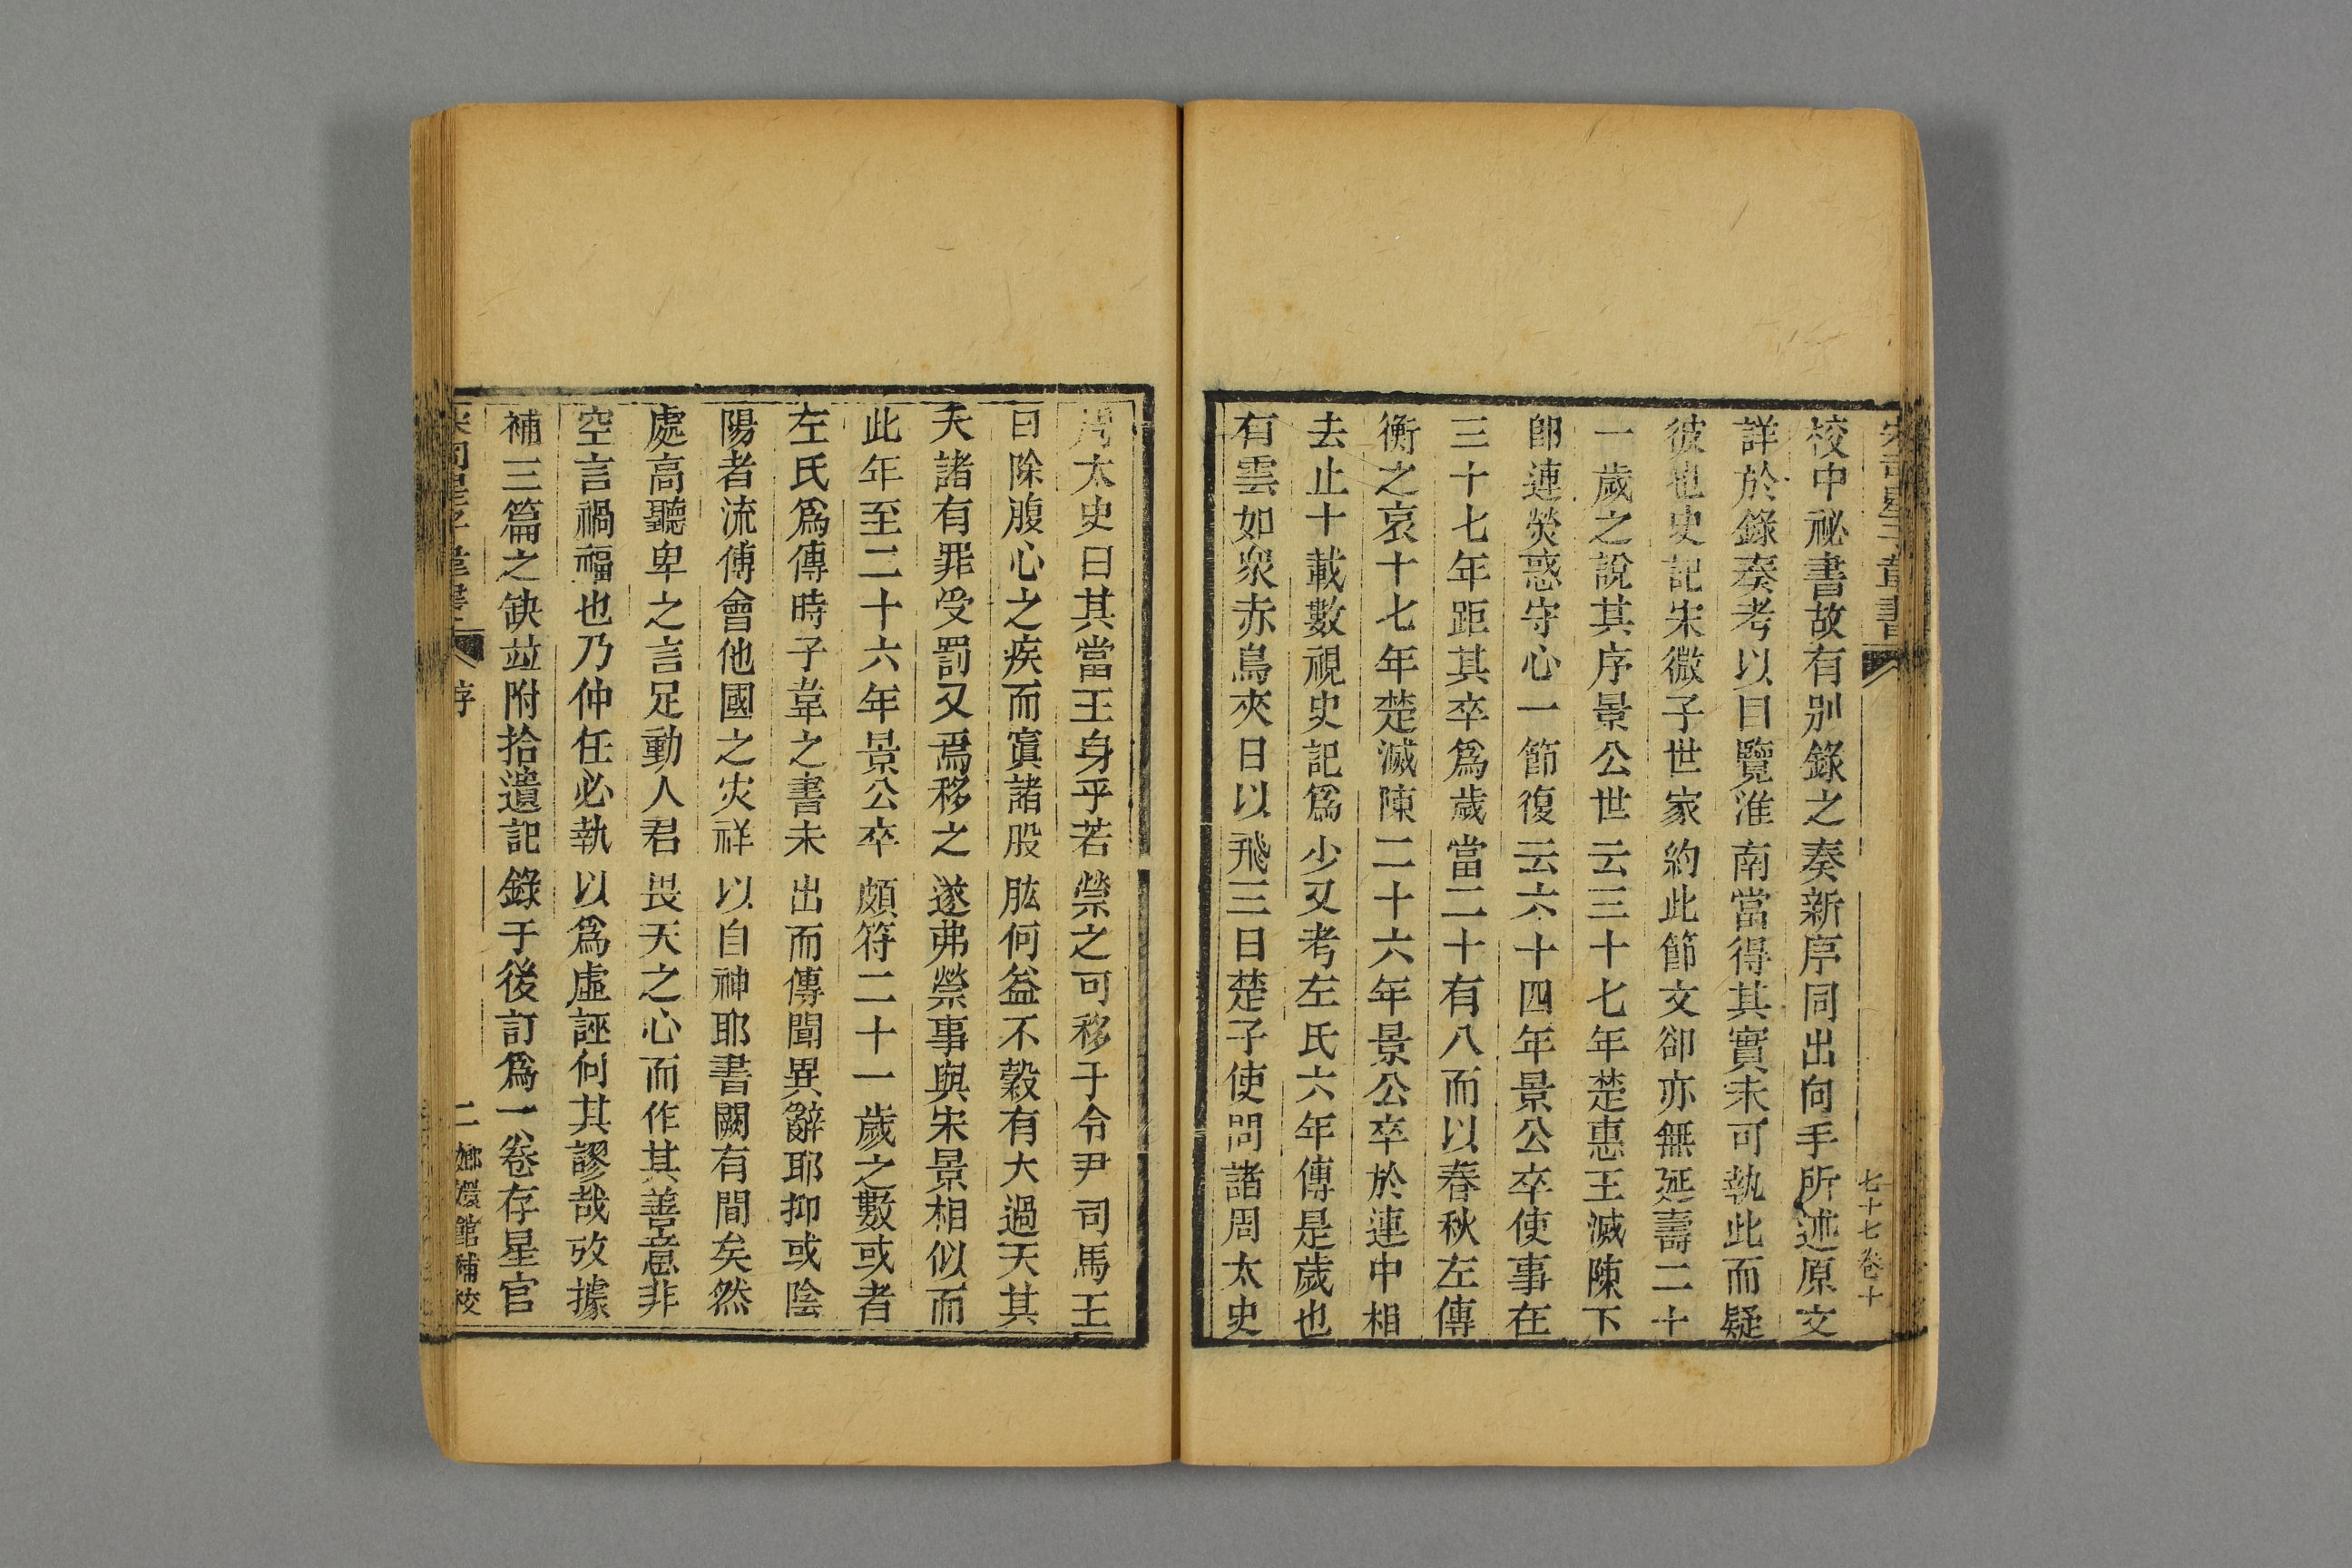 七十七卷十
校中祕書故有別錄之奏新序同出向手所述原文
詳於錄奏考以目覽淮南當得其實未可執此而疑
彼也史記宋微子世家約此節文卻亦無延壽二十
一歲之說其序景公世云三十七年楚惠王滅陳下
卽連熒惑守心一節復云六十四年景公卒使事在
三十七年距其卒爲歲當二十有八而以春秋左傳
衡之哀十七年楚滅陳二十六年景公卒於連中相
去止十載數視史記爲少又考左氏六年傳是歲也
有雲如衆赤鳥夾日以飛三日楚子使問諸周太史
周太史曰其當王身乎若禜之可移于令尹司馬王
曰除腹心之疾而寘諸股肱何益不穀有大過天其
夭諸有罪受罰又焉移之遂弗禜事與宋景相似而
此年至二十六年景公卒頗符二十一歲之數或者
左氏爲傳時子韋之書未出而傳聞異辭耶抑或陰
陽者流傅會他國之灾祥以自神耶書闕有間矣然
處高聽卑之言足動人君畏天之心而作其善意非
空言禍福也乃仲任必執以爲虛誣何其謬哉攷據
補三篇之缺竝附拾遺記錄于後訂爲一卷存星官
序 二 嫏嬛館補校